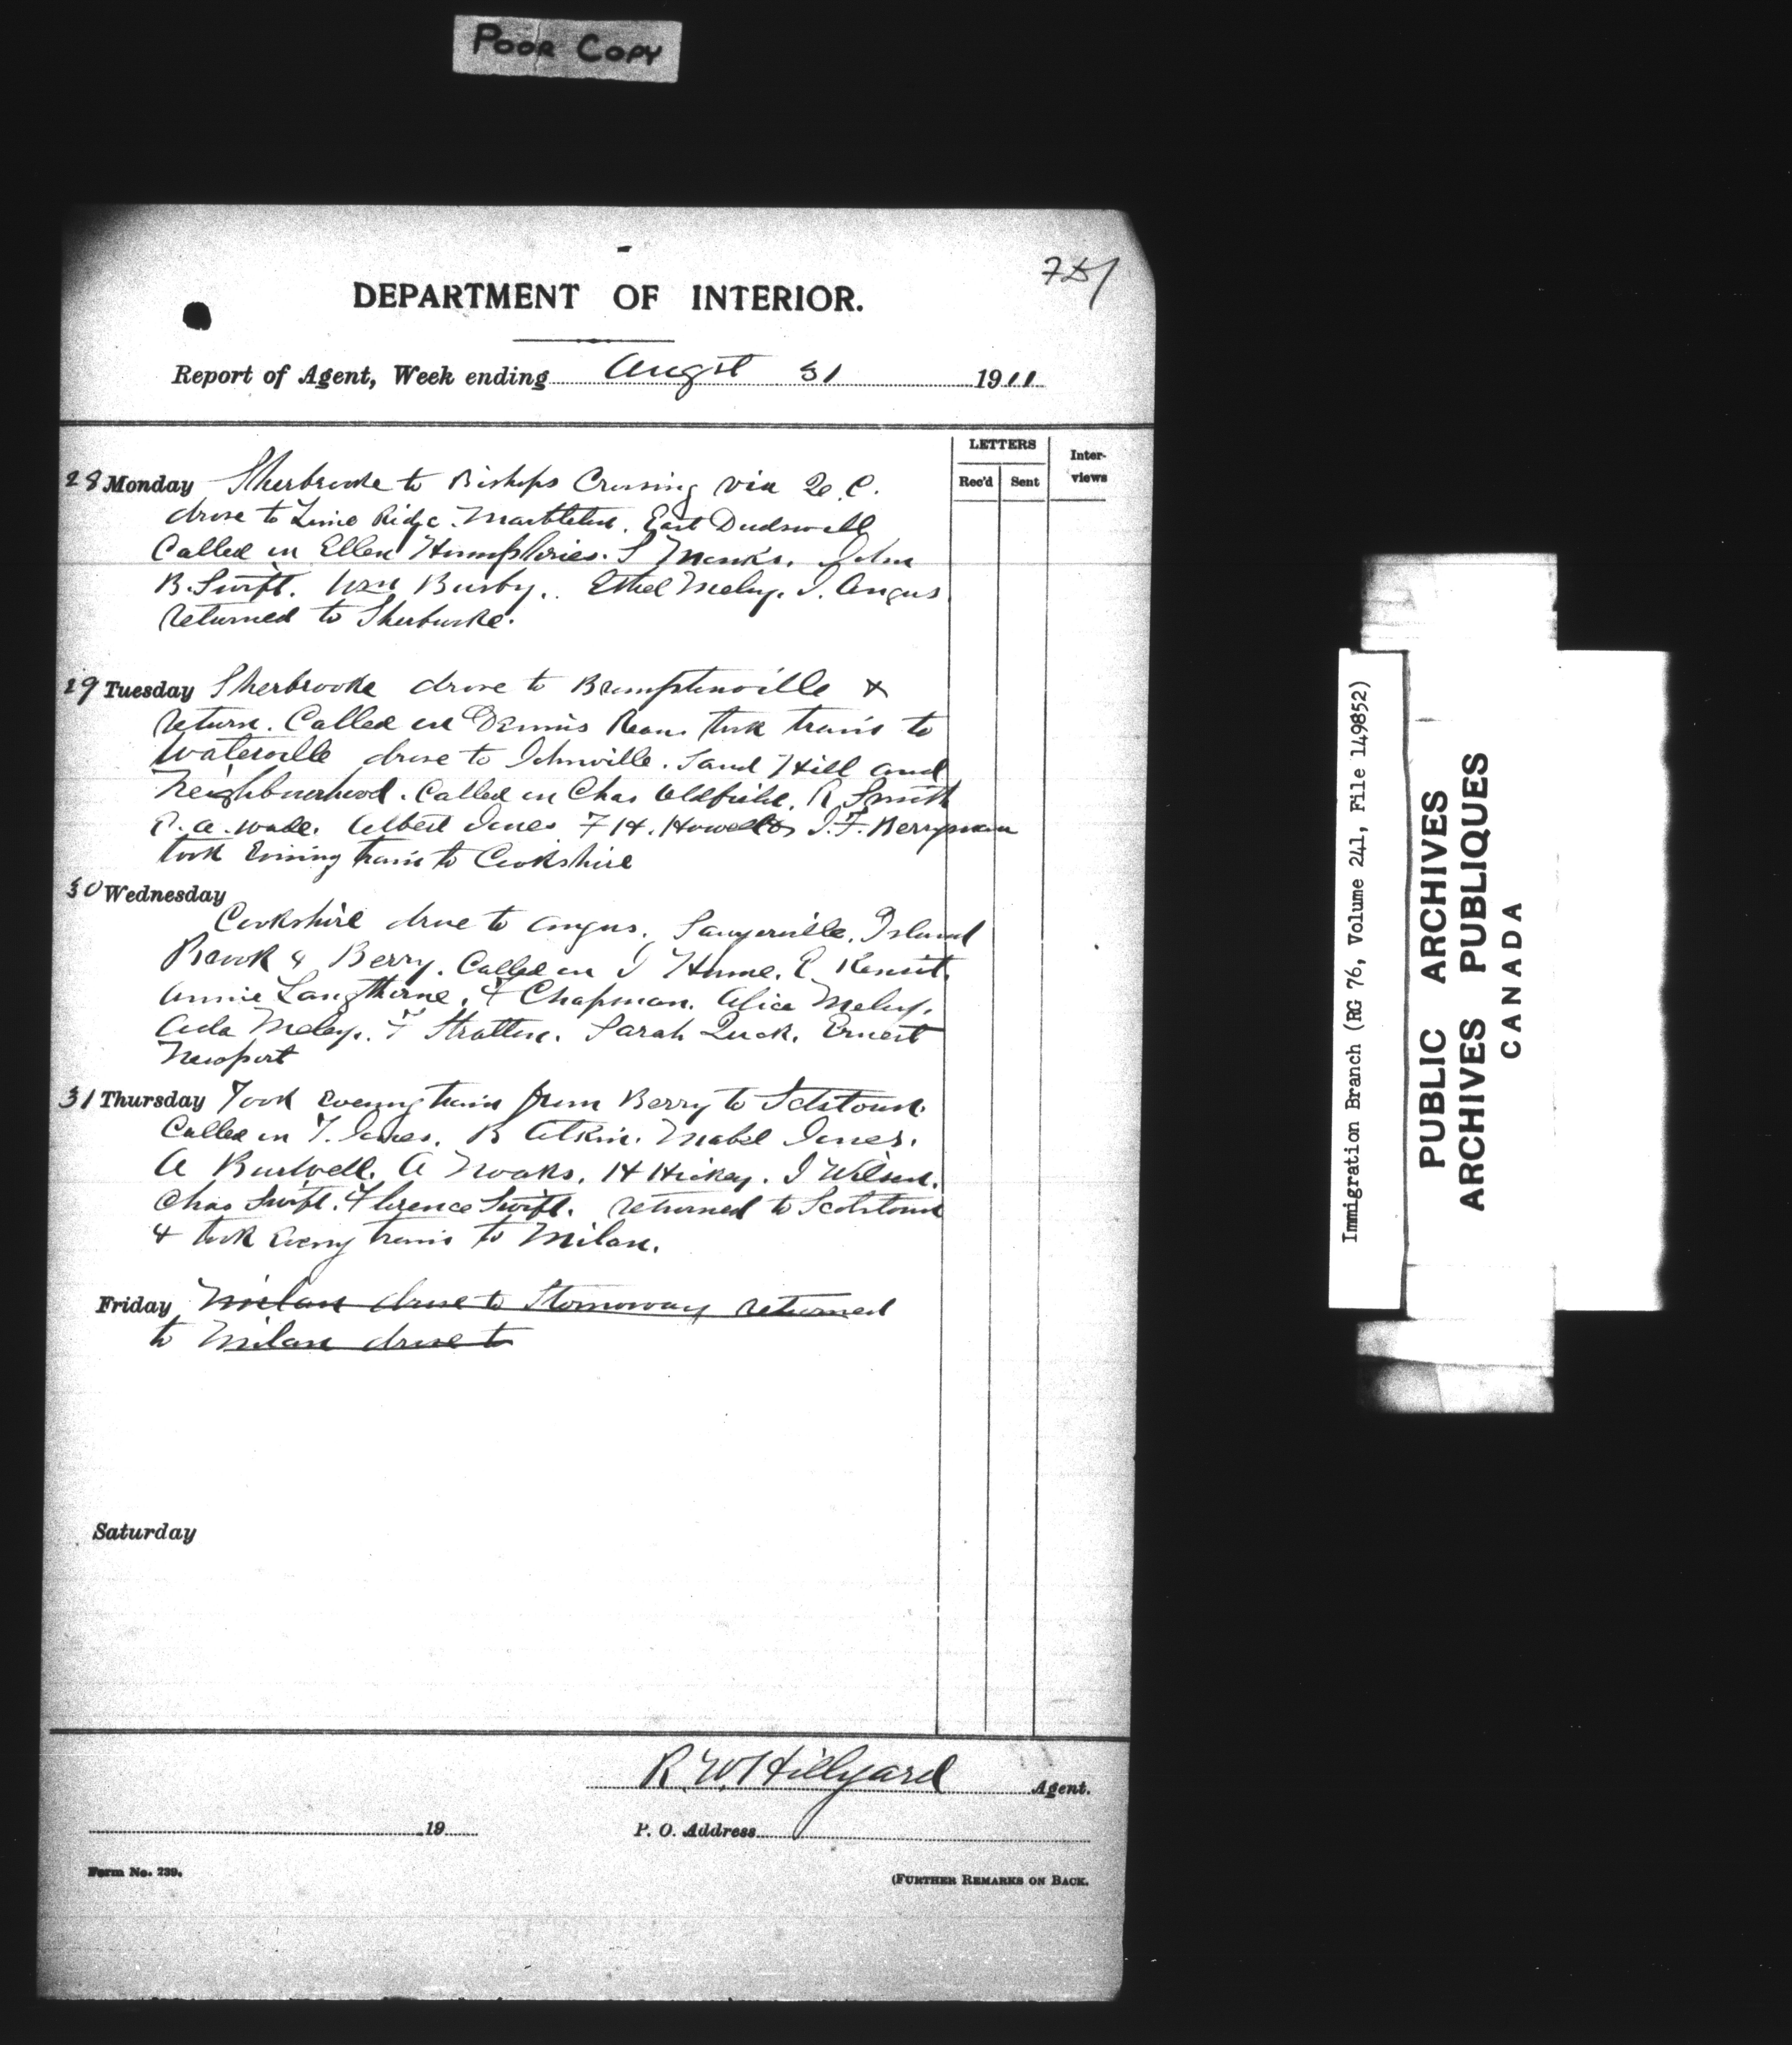 POOR COPY
751
DEPARTMENT OF INTERIOR.
Report of Agent, Week ending Augst 31 1911
LETTERS
Inter-
views
Rec'd Sent
28 Monday Sherbrooke to Bishops Crossing via Q. C.
drove to Lime Ridge. Marbleton. East Dudswell
Called on Ellen Humphries. S Monks. John
B. Swift. Wm Busby. Ethel Meley. J. Angus
returned to Sherbrooke.
29 Tuesday Sherbrooke drove to Bromptonville &
return. Called on Dennis took train to
Waterville drove to Johnville. Sand Hill and
Neighbourhood. Called on Chas Oldfield. R Smith
P. A. Wade. Albert Jones F H. Howells J. F. Berryman
took Evining train to Cookshire
30 Wednesday
Cookshire drove to Angus. Sawyerville. Island
Brook & Berry. Called on J Hume. E Kensit.
Annie Langthorne. F Chapman. Alice Meley.
Ada Meley. F Stratton. Sarah Luck. Ernest
Newport
31 Thursday Took Evening train from Berry to Scotstown.
Called on T. Jones. B Atkin. Mabel Jones.
A Burwell. A Noaks. H Hickey. J Wilson.
Chas Swift. Florence Swift. returned to Scotstown
& took Evening train to Milan.
Friday Milan drove to Stornoway returned
to Milan drove to
Saturday
R. W. Hillyard Agent.
19
P. O. Address
Form No. 239.
(FURTHER REMARKS ON BACK.
Immigration Branch (RG 76, Volume 241, File 149852)
PUBLIC ARCHIVES
ARCHIVES PUBLIQUES
CANADA